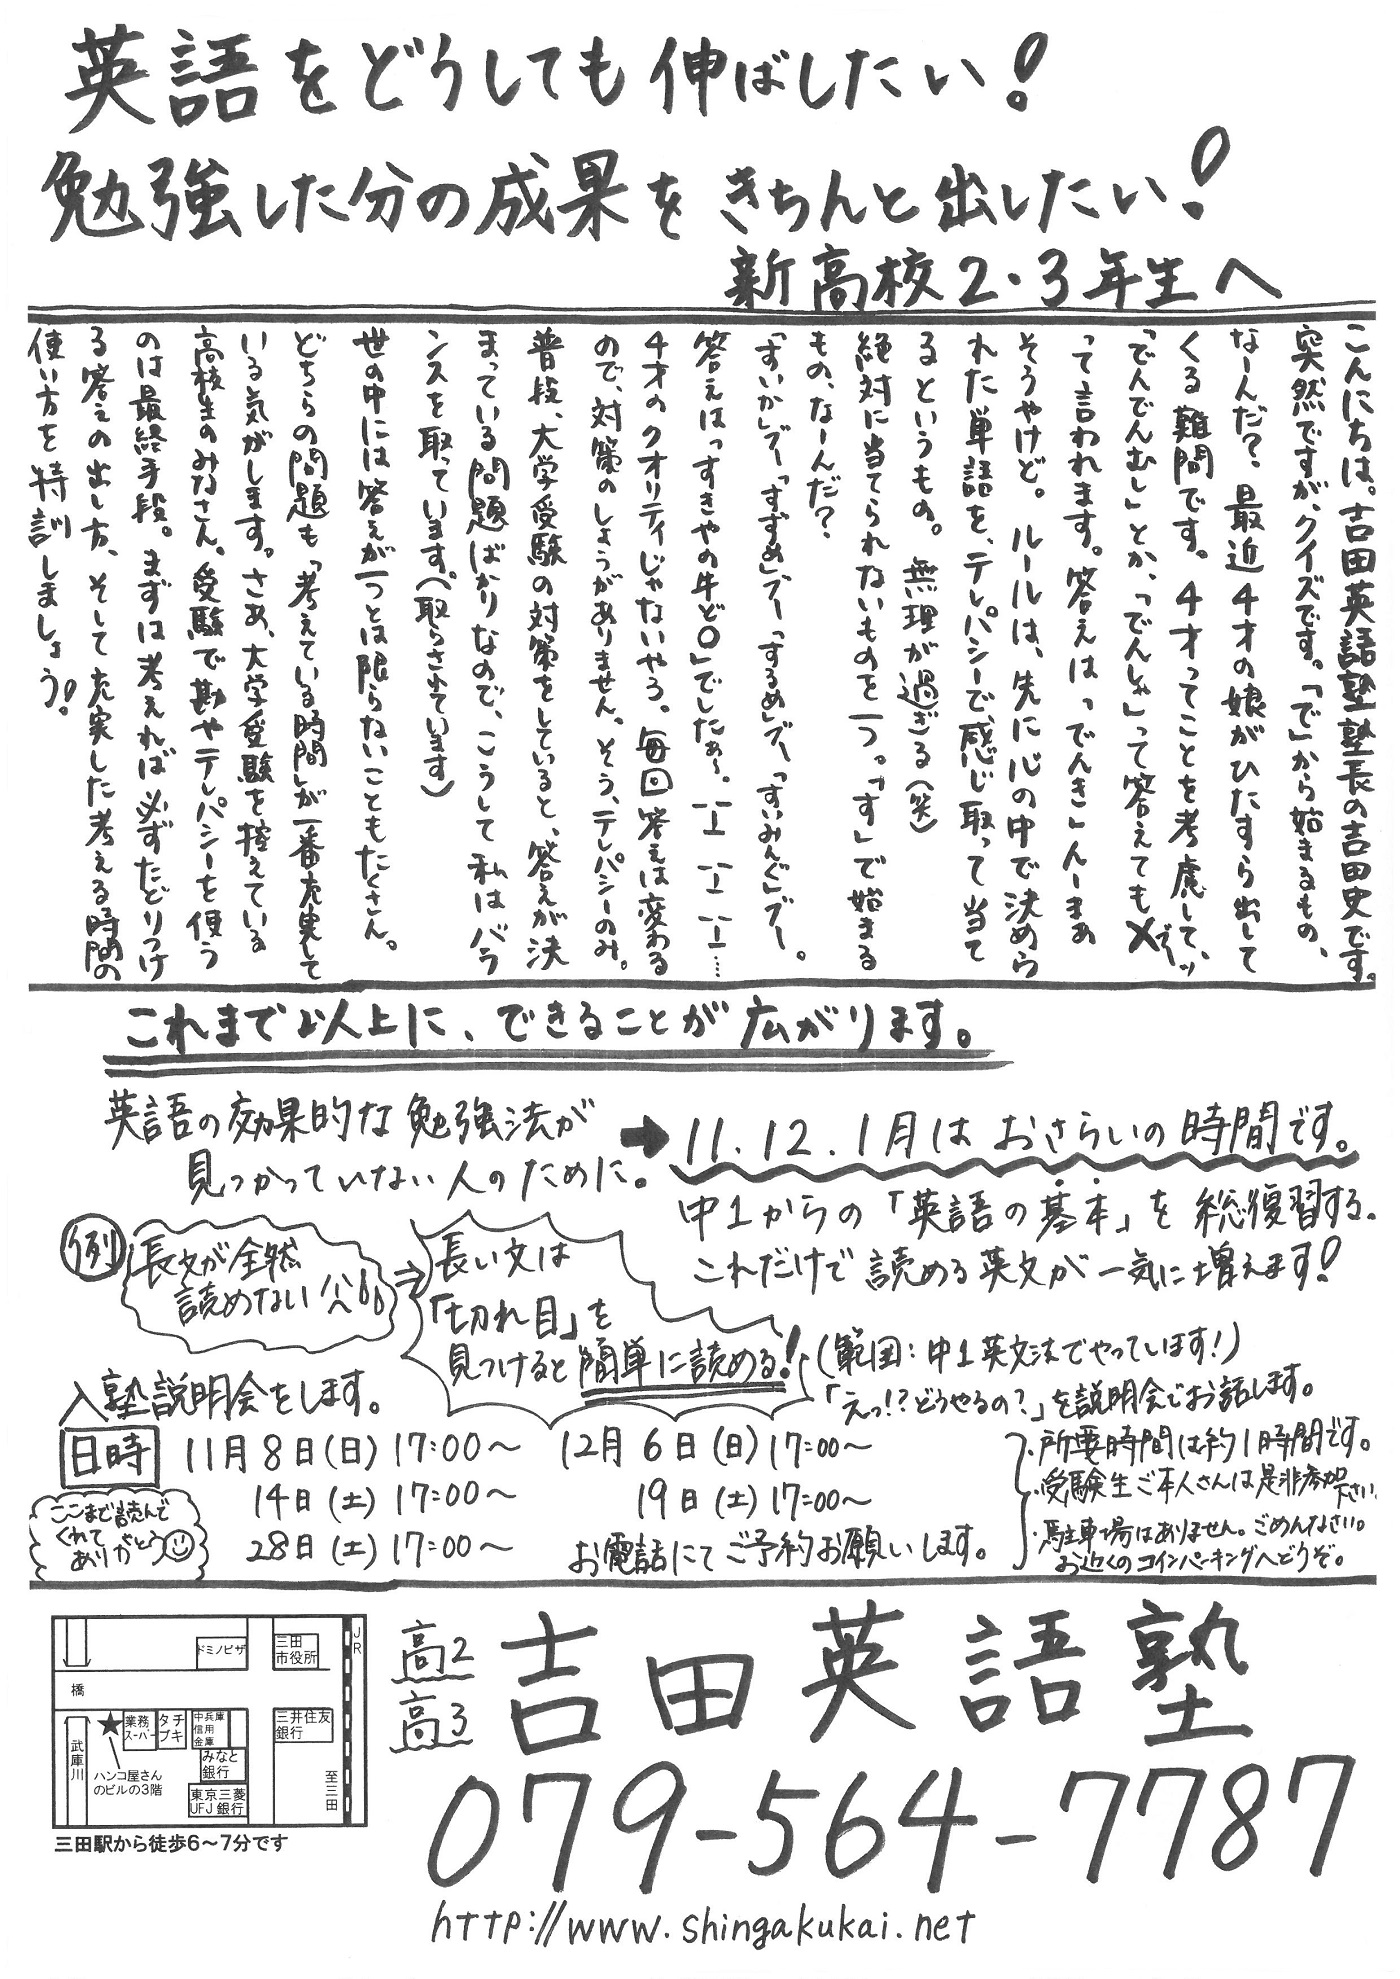 英語をどうしても伸ばしたい!
勉強した分の成果をきちんと出したい!
新高校2・3年生へ
こんにちは。吉田英語塾塾長の吉田史です。
突然ですが、クイズです。「で」から始まるもの、
なーんだ?、最近4才の娘がひたすら出して
くる難問です。4才ってことを考慮して、
「でんでんむし」とか、「でんしゃ」って答えても×ブーッ
って言われます。答えは「でんき」んーまぁ
そうやけど。ルールは、先に心の中で決めら
れた単語を、テレパシーで感じ取って当て
るというもの。無理が過ぎる(笑)
絶対に当てられないものを一つ。「す」で始まる
もの、なーんだ?
「すいか」ブー「すずめ」ブー「するめ」ブー「すいみんぐ」ブー。
答えは「すきやの牛ど〇」でしたぁ〜。
4才のクオリティじゃないやろ。毎回答えは変わる
ので、対策のしようがありません。そう、テレパシーのみ。
普段、大学受験の対策をしていると、答えが決
まっている問題ばかりなので、こうして私はバラ
ンスを取っています。(取らされています)
世の中には答えが一つとは限らないこともたくさん。
どちらの問題も「考えている時間」が一番充実して
いる気がします。さあ、大学受験を控えている
高校生のみなさん。受験で勘やテレパシーを使う
のは最終手段。まずは考えれば必ずたどりつけ
る答えの出し方、そして充実した考える時間の
使い方を特訓しましょう!
これまで以上に、できることが広がります。
英語の効果的な勉強法が
見つかっていない人のために。
➡11.12.1月はおさらいの時間です。
中1からの「英語の基本」を総復習する。
これだけで読める英文が一気に増えます!
例
長文が全然
読めない
⇒
長い文は
「切れ目」を
見つけると簡単に読める!
(範囲:中1英文法でやっています!)
「えっ!?どうやるの?」を説明会でお話します。
入塾説明会をします。
日時
11月8日(日)17:00〜
14日(土)17:00〜
28日(土)17:00〜
12月6日(日)17:00〜
19日(土)17:00〜
お電話にてご予約お願いします。
・所要時間は約1時間です。
・受験生ご本人さんは是非参加下さい
・駐車場はありません。ごめんなさい。
お近くのコインパーキングへどうぞ。
ここまで読んで
くれて
ありがとう
ドミノピザ
三田
市役所
JR
橋
武庫川
★
業務
スーパー
タチ
ブキ
中兵庫
信用
金庫
三井住友
銀行
みなと
銀行
東京三菱
UFJ銀行
ハンコ屋さん
のビルの3階
至三田
三田駅から徒歩6〜7分です
高2
高3
吉田英語塾
079-564-7787
http://www.shingakukai.net